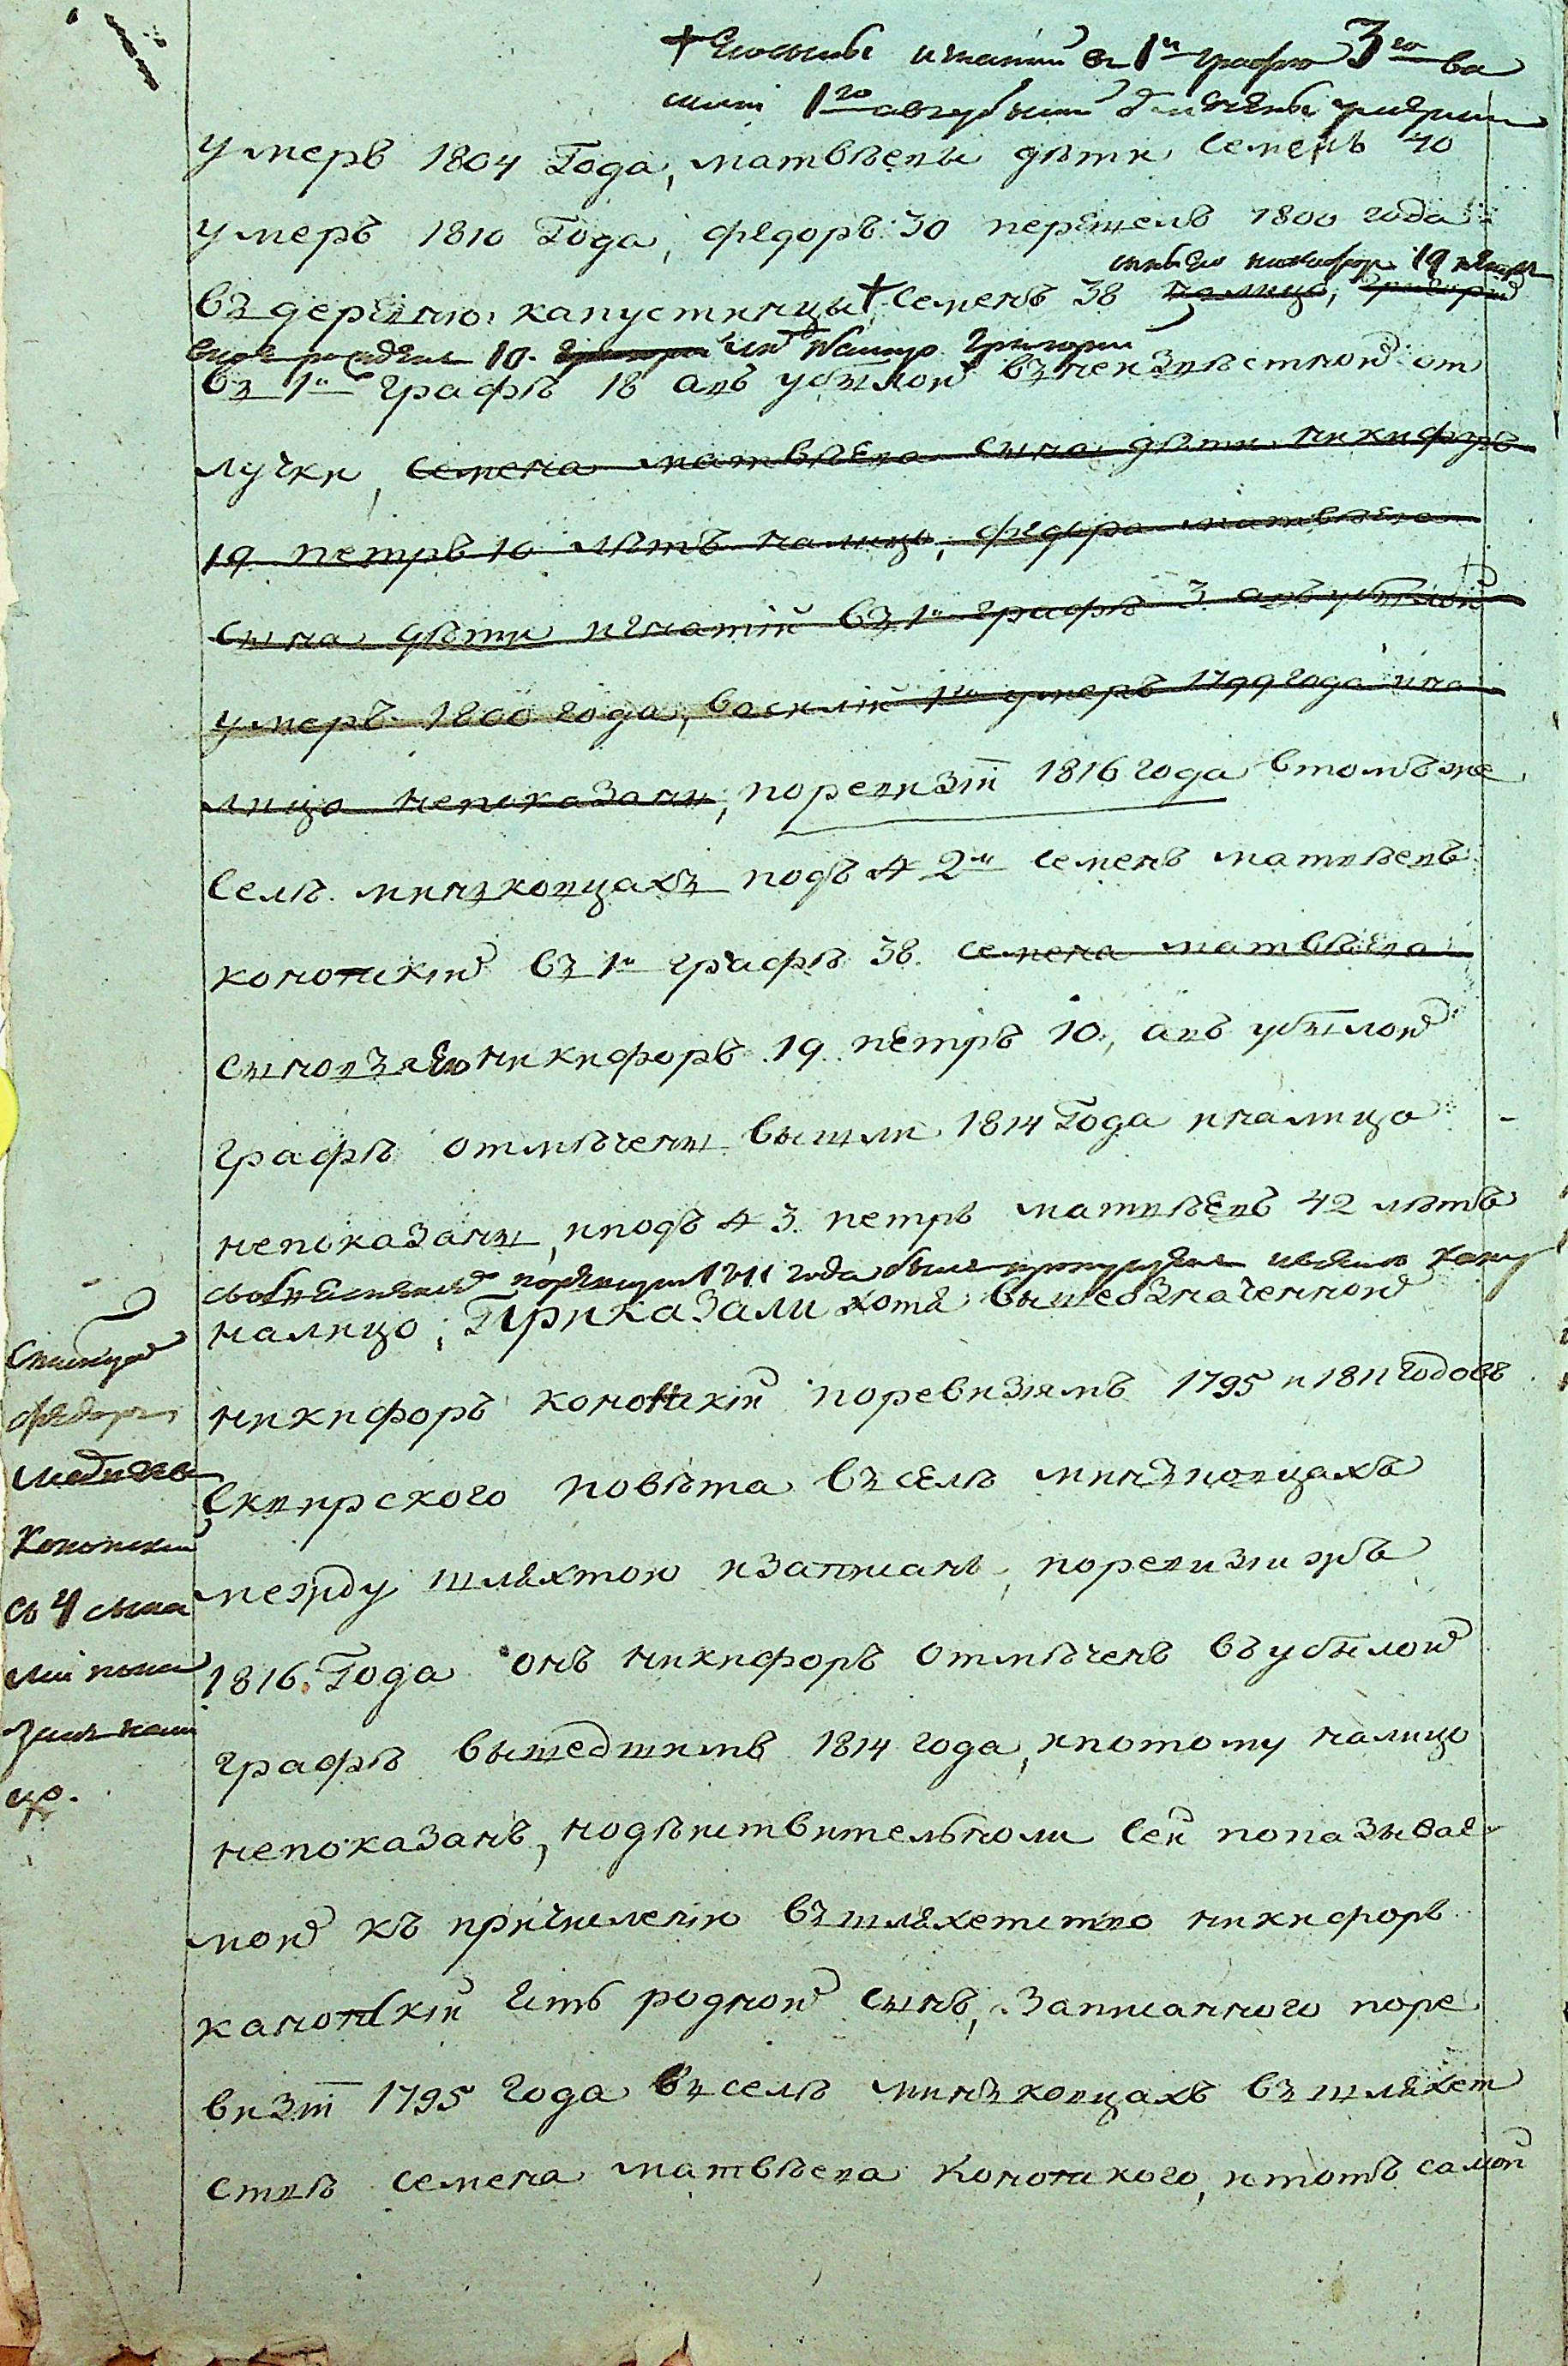 † Его сынъ игнатий въ 1й графе 3го ва
силий 1го а въ убылой отмечены умершими
умерв 1804 Года, матвѣевы дѣти Семенъ 40
умеръ 1810 Года, федоръ 30 перешелъ 1800 года
сынъ его никифоръ 19 петръ
въ деревню капустинцы † Семенъ 38 на лицо, григорий
10. григорий на лицо григорий
въ 1й графѣ 18 а въ убылой въ неизвѣстной от
лучки, семена матвѣева сына дѣти никифоръ
19 петръ 10 лѣтъ налицо, федора матвѣева
сына дѣти игнатiй въ 1й графѣ 3 а въ убылой
умеръ 1800 года, василiй 1го умеръ 1799 года и на
лицо непоказаны, поревизiи 1816 года втомъ же
Селѣ минзковцахъ подъ № 2м семенъ матвѣевъ
конопскiй въ 1й графѣ 38. семена матвѣева
сыновья его никифоръ 19 петръ 10, а въ убылой
графѣ отмѣчены вышли 1814 Года и налицо
непоказаны, и подъ № 3. петръ матвѣевъ 42 лѣтъ
поревизии 1811 года былъ пропущенъ
налицо; Приказали хотя вышеозначенной
никифоръ конопскiй поревизiямъ 1795 и 1811 годовъ
Сквирского повѣта въ селѣ минзковцахъ
между шляхтою и записанъ, поревизiи жъ
1816. Года онъ никифоръ отмѣченъ въ убылой
графѣ вышедшимъ 1814 года, и потому налицо
непоказанъ, но дѣйствительно ли сей показывае
мой къ причислению въ шляхетство никифоръ
канопскiй есть родной сынъ, Записанного поре
визiи 1795 года въ селѣ минзковцахъ въ шляхет
ствѣ семена матвѣева Конопского, и тотъ самой
федоръ
матвѣевъ
Конопскiй
съ 4 сына
ми пока
занъ нали
цо.